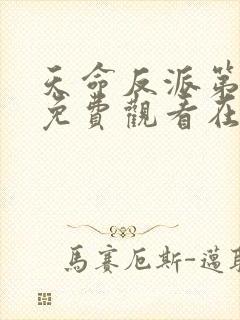 天命反派第
免費觀看在
馬賽厄斯-邁耶